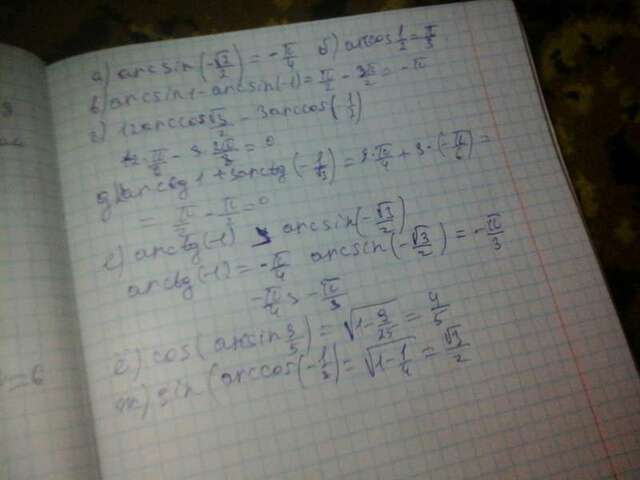 а) arcsin(-√3/2) = -π/4 б) arccos 1/2 = π/3
в) arcsin 1 - arcsin(-1) = π/2 - 3π/2 = -π
г) 12 arccos √3/2 - 3 arccos(-1/2)
12·π/6 - 3·2π/3 = 0
д) 2 arctg 1 + 3 arctg(-1/√3) = 2·π/4 + 3·(-π/6) =
= π/2 - π/2 = 0
е) arctg(-1) > arcsin(-√3/2)
arctg(-1) = -π/4 arcsin(-√3/2) = -π/3
-π/4 > -π/3
ё) cos(arcsin 3/5) = √1-9/25 = 4/5
ж) sin(arccos(-1/2) = √1-1/4 = √3/2
= 6